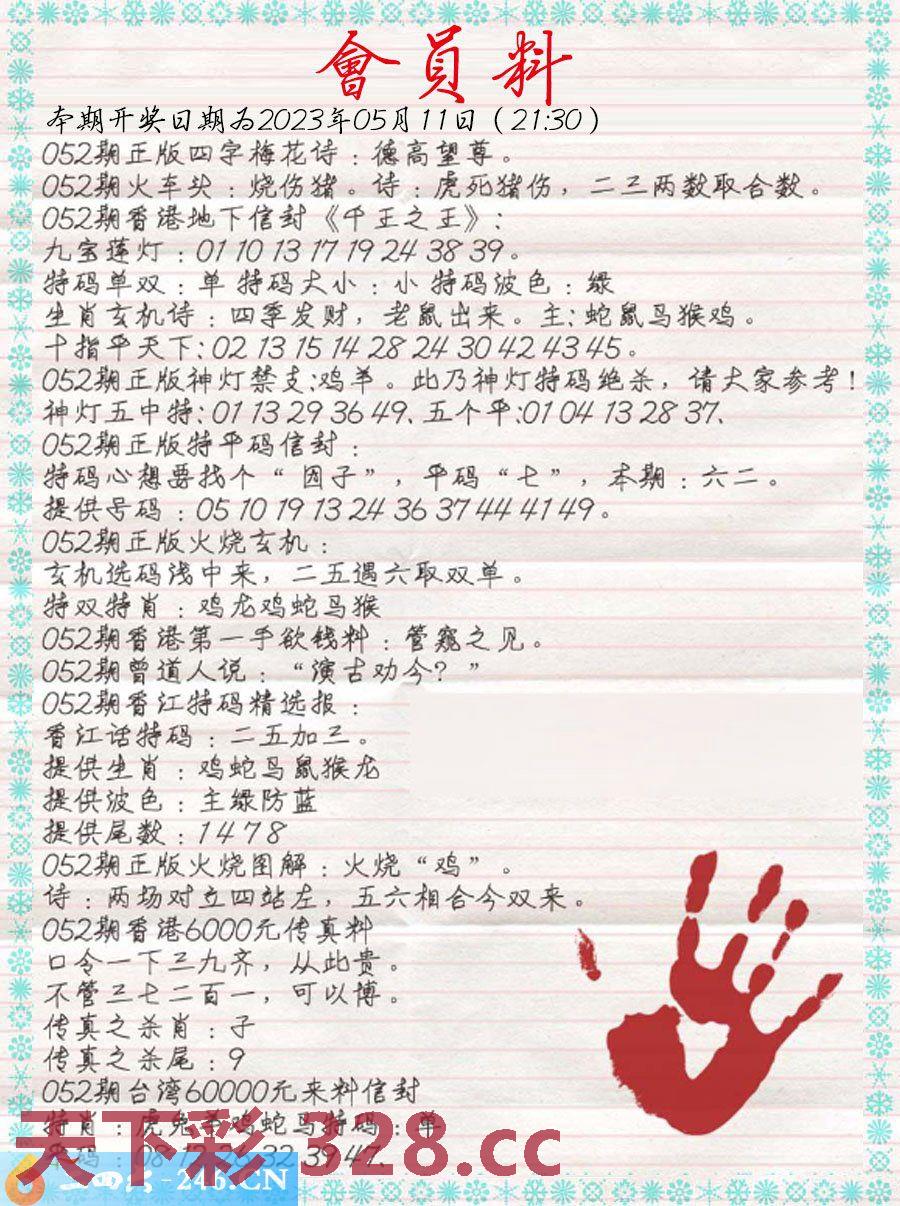 會員料
本期开奖日期为2023年05月11日（21:30）
052期正版四字梅花诗：德高望尊。
052期火车头：烧伤猪。诗：虎死猪伤，二三两数取合数。
052期香港地下信封《千王之王》：
九宝莲灯：01 10 13 17 19 24 38 39。
特码单双：单 特码大小：小 特码波色：绿
生肖玄机诗：四季发财，老鼠出来。主：蛇鼠马猴鸡。
十指平天下：02 13 15 14 28 24 30 42 43 45。
052期正版神灯禁支：鸡羊。此乃神灯特码绝杀，请大家参考！
神灯五中特：01 13 29 36 49、五个平：01 04 13 28 37、
052期正版特平码信封：
特码心想要找个“因子”，平码“七”，本期：六二。
提供号码：05 10 19 13 24 36 37 44 41 49。
052期正版火烧玄机：
玄机选码浅中来，二五遇六取双单。
特双特肖：鸡龙鸡蛇马猴
052期香港第一手欲钱料：管窥之见。
052期曾道人说：“演古劝今？”
052期香江特码精选报：
香江话特码：二五加三。
提供生肖：鸡蛇马鼠猴龙
提供波色：主绿防蓝
提供尾数：1 4 7 8
052期正版火烧图解：火烧“鸡”。
诗：两场对立四站左，五六相合今双来。
052期香港6000元传真料
口令一下三九齐，从此贵。
不管三七二百一，可以博。
传真之杀肖：子
传真之杀尾：9
052期台湾60000元来料信封
特肖：虎兔羊鸡蛇马特码：单
平码：08 12 32 39 47、
天下彩 328.cc
二四六-246.CN